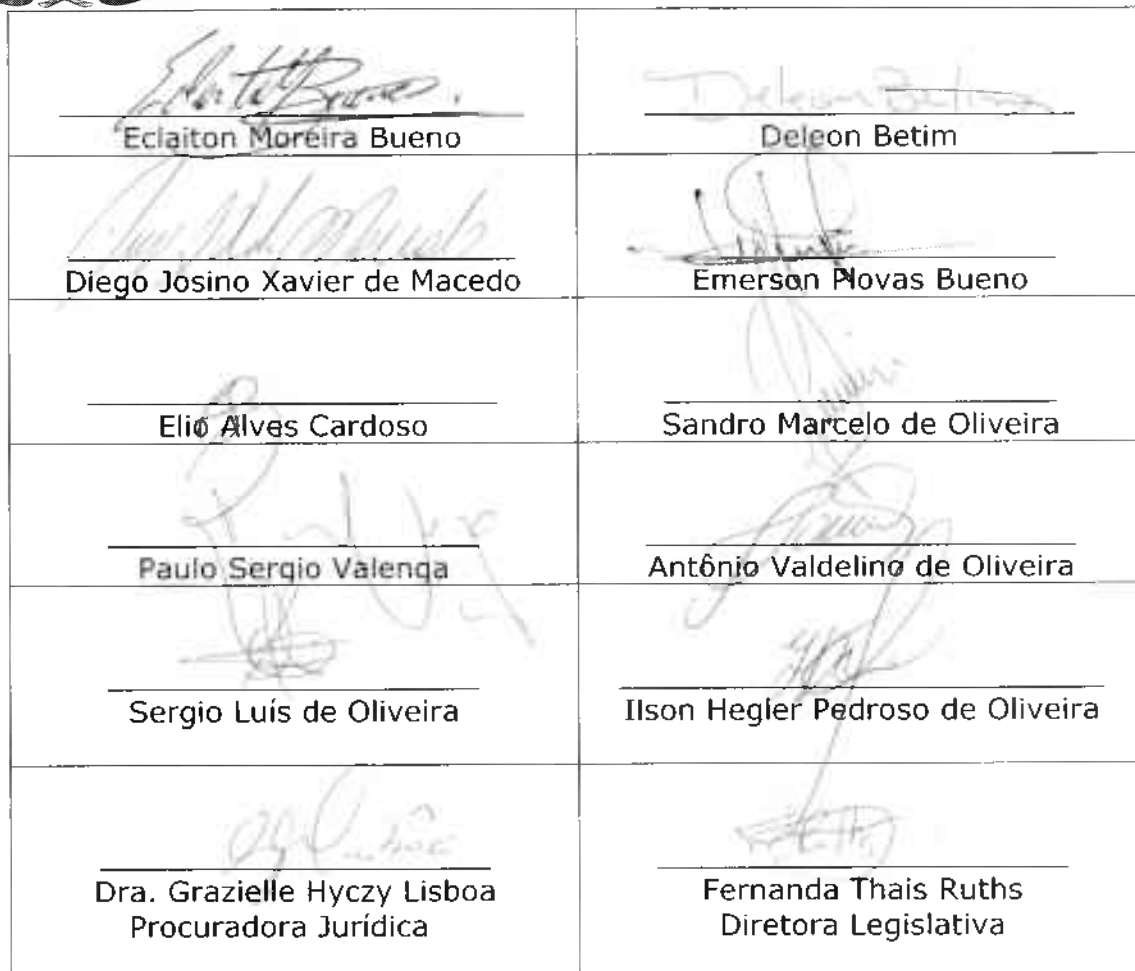 Eclaiton Moreira Bueno
Deleon Betim
Deleon Betim
Diego Josino Xavier de Macedo
Emerson Novas Bueno
Elio Alves Cardoso
Sandro Marcelo de Oliveira
Paulo Sergio Valenga
Antônio Valdelino de Oliveira
Sergio Luís de Oliveira
Ilson Hegler Pedroso de Oliveira
Dra. Grazielle Hyczy Lisboa
Procuradora Jurídica
Fernanda Thais Ruths
Diretora Legislativa